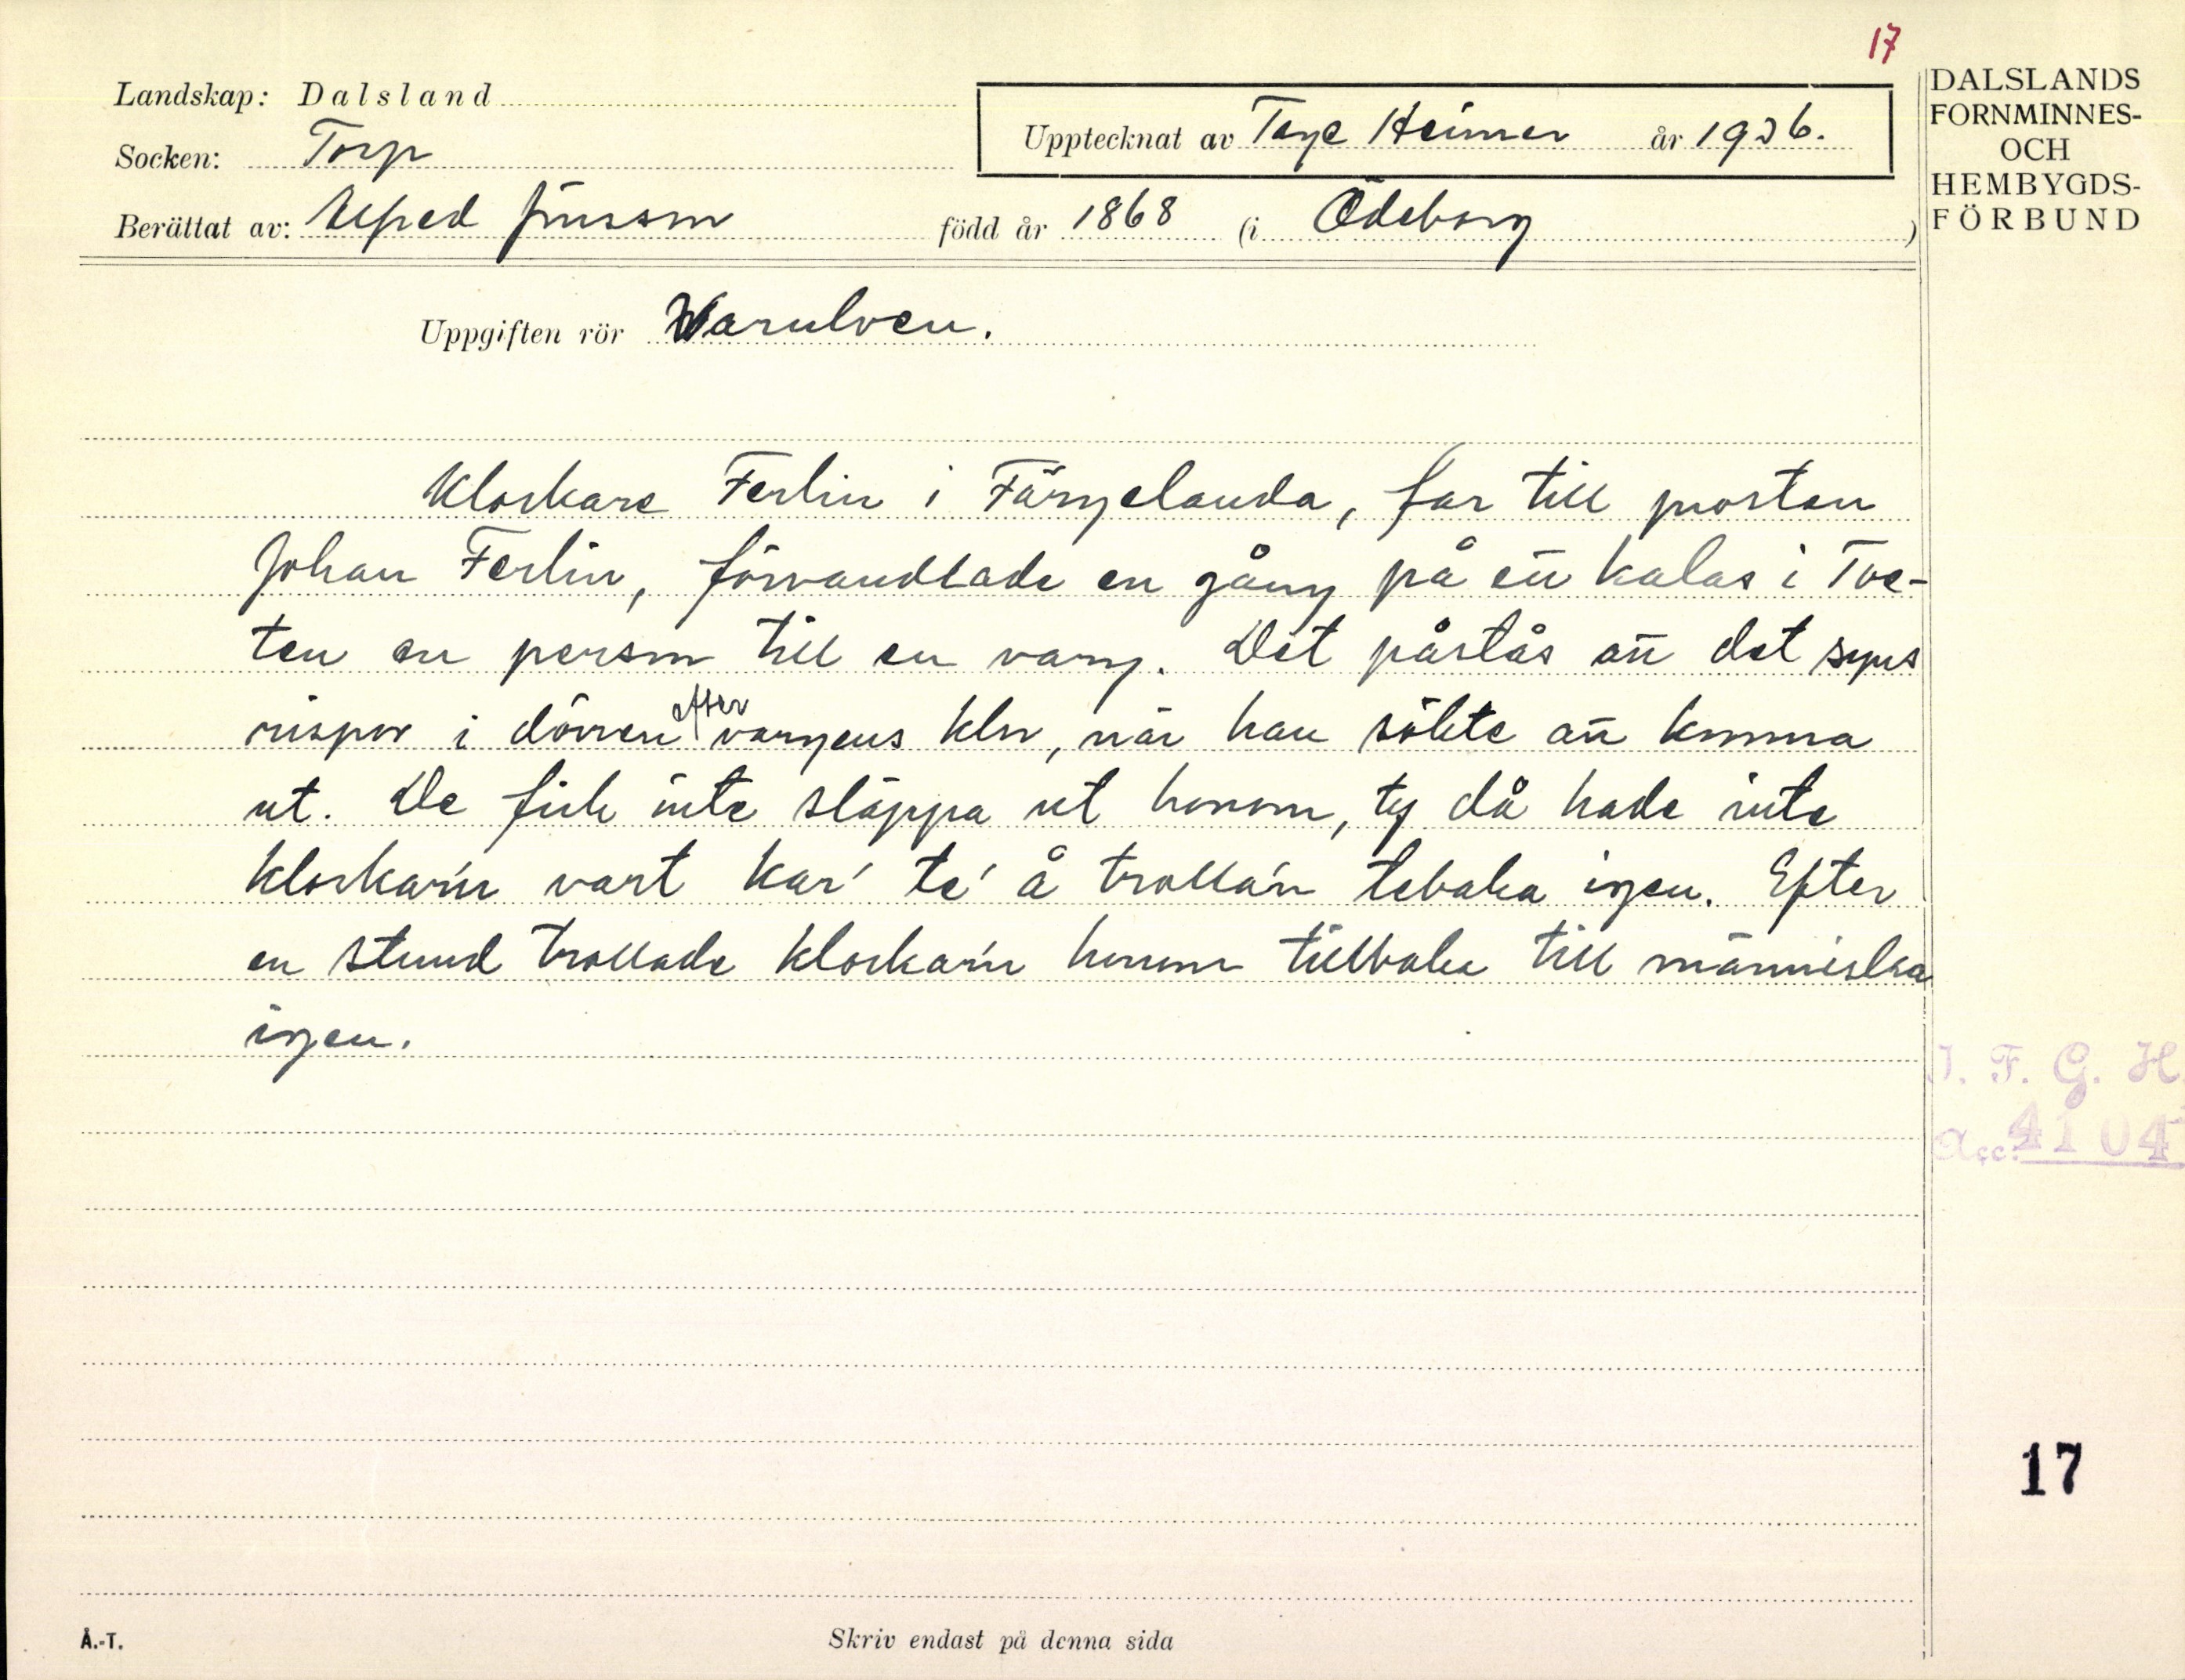 17
Landskap: Dalsland
Socken: Torp
Upptecknat av Tage Heimer år 1936.
Berättat av: Alfred Jonsson född år 1868 (i Ödeborg )
DALSLANDS
FORNMINNES-
OCH
HEMBYGDS-
FÖRBUND
Uppgiften rör Varulven.
Klockare Ferlin i Färgelanda, far till prosten
Johan Ferlin, förvandlade en gång på ett kalas i Tve-
ten en person till en varg. Det påstås att det syns
rispor i dörren efter vargens klor, när han sökte att komma
ut. De fick inte släppa ut honom, ty då hade inte
klockar'n vart kar' te' å trolla'n tebaka igen. Efter
en stund trollade klockar'n honom tillbaka till människa
igen.
I. F. G. H.
Acc. 4104
17
Å.-T.
Skriv endast på denna sida